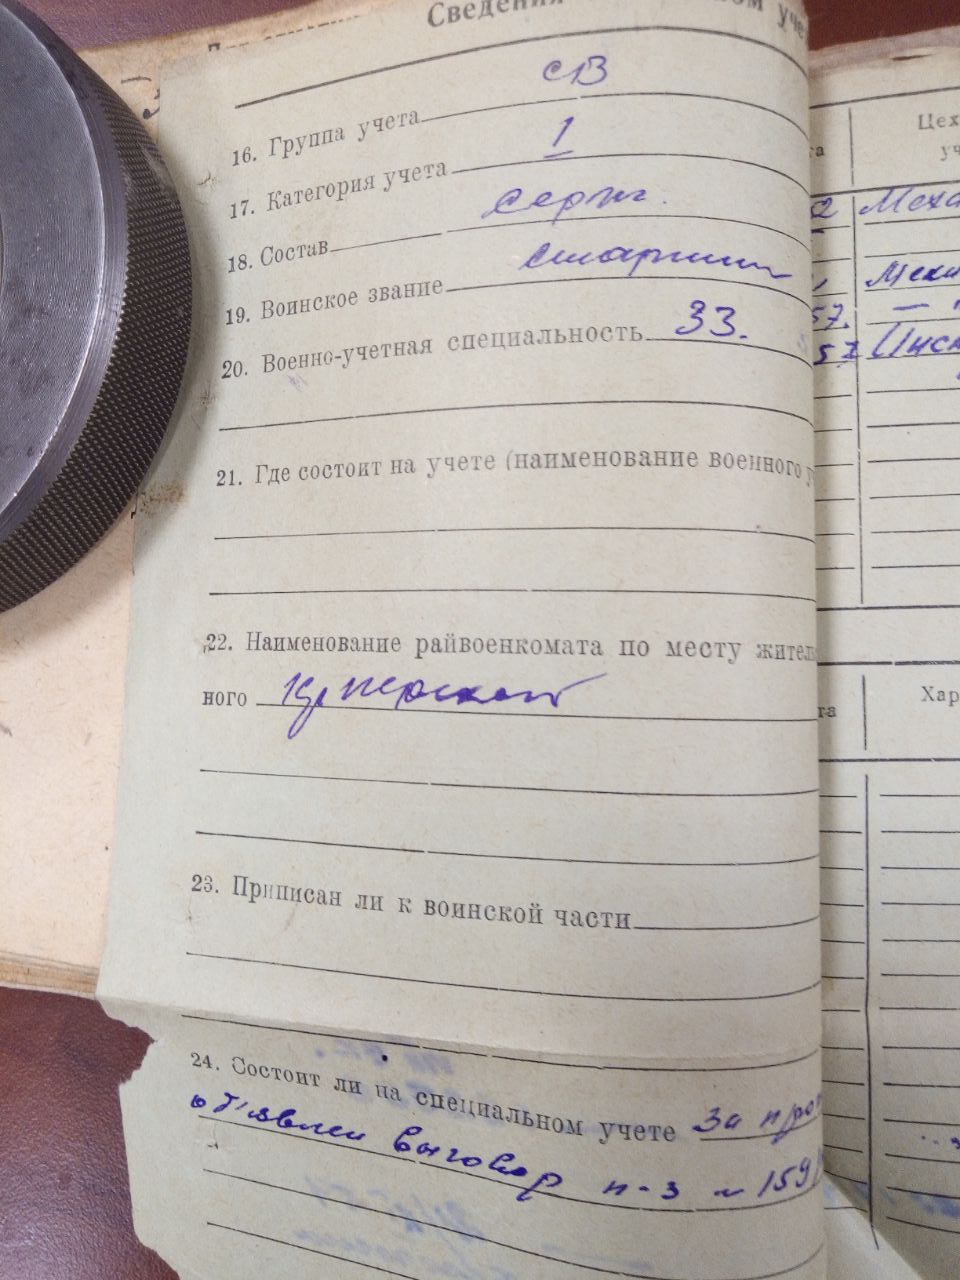 Сведения
16. Группа учета СВ
17. Категория учета 1
18. Состав серж.
19. Воинское звание старшин
20. Военно-учетная специальность 33.
21. Где состоит на учете (наименование военного
22. Наименование райвоенкомата по месту жител
ного
23. Приписан ли к воинской части
24. Состоит ли на специальном учете За про
об'явлен выговор п-з № 159
Цех
уч
Меха
57.
57
Хар